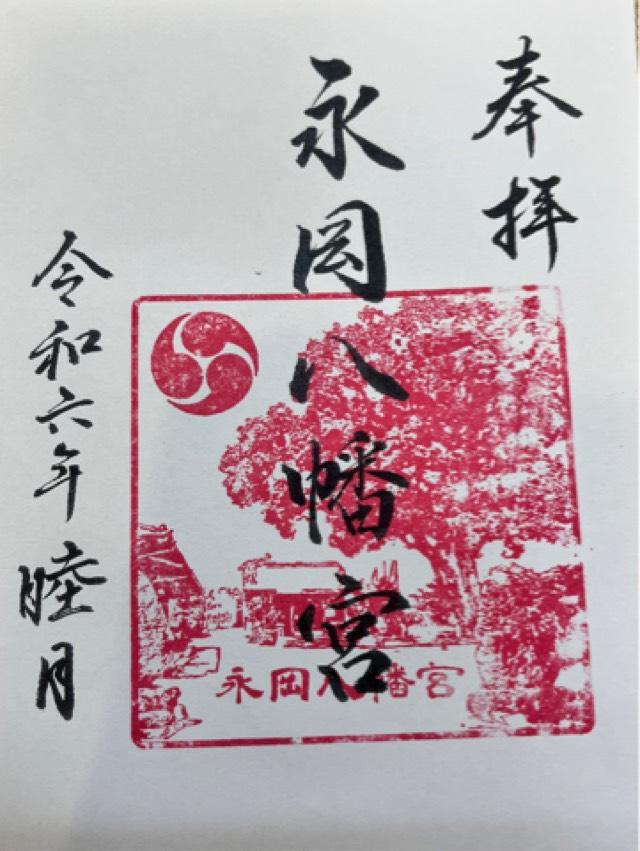 奉拝
永岡八幡宮
令和六年睦月
永岡八幡宮